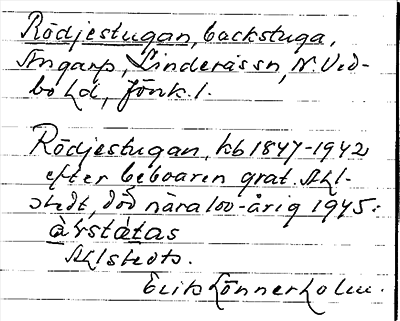 Rödjestugan, backstuga,
Angarp, Linderås sn, N. Ved-
bo hd, Jönk. l.
Rödjestugan, kb 1847-1942
efter beboaren grat. Ahl-
stedt, död nära 100-årig 1945:
Ahlstedts.
Erik Lönnerholm.